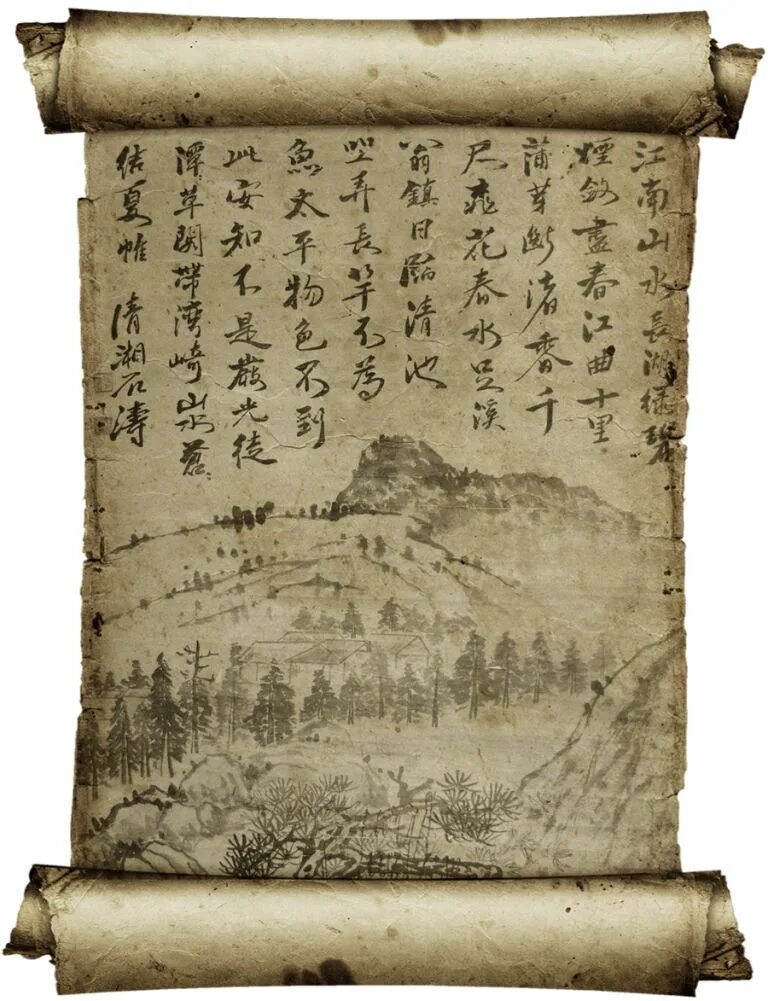 江南山水長湖緑
煙斂盡春江曲十里
蒲芽斷渚香千
尺桃花春水足溪
翁鎮日臨清池
坐弄長竿不為
魚太平物色不到
此安知不是嚴光徒
潭草帶灣崎山水蒼
結夏帷 清湘石濤